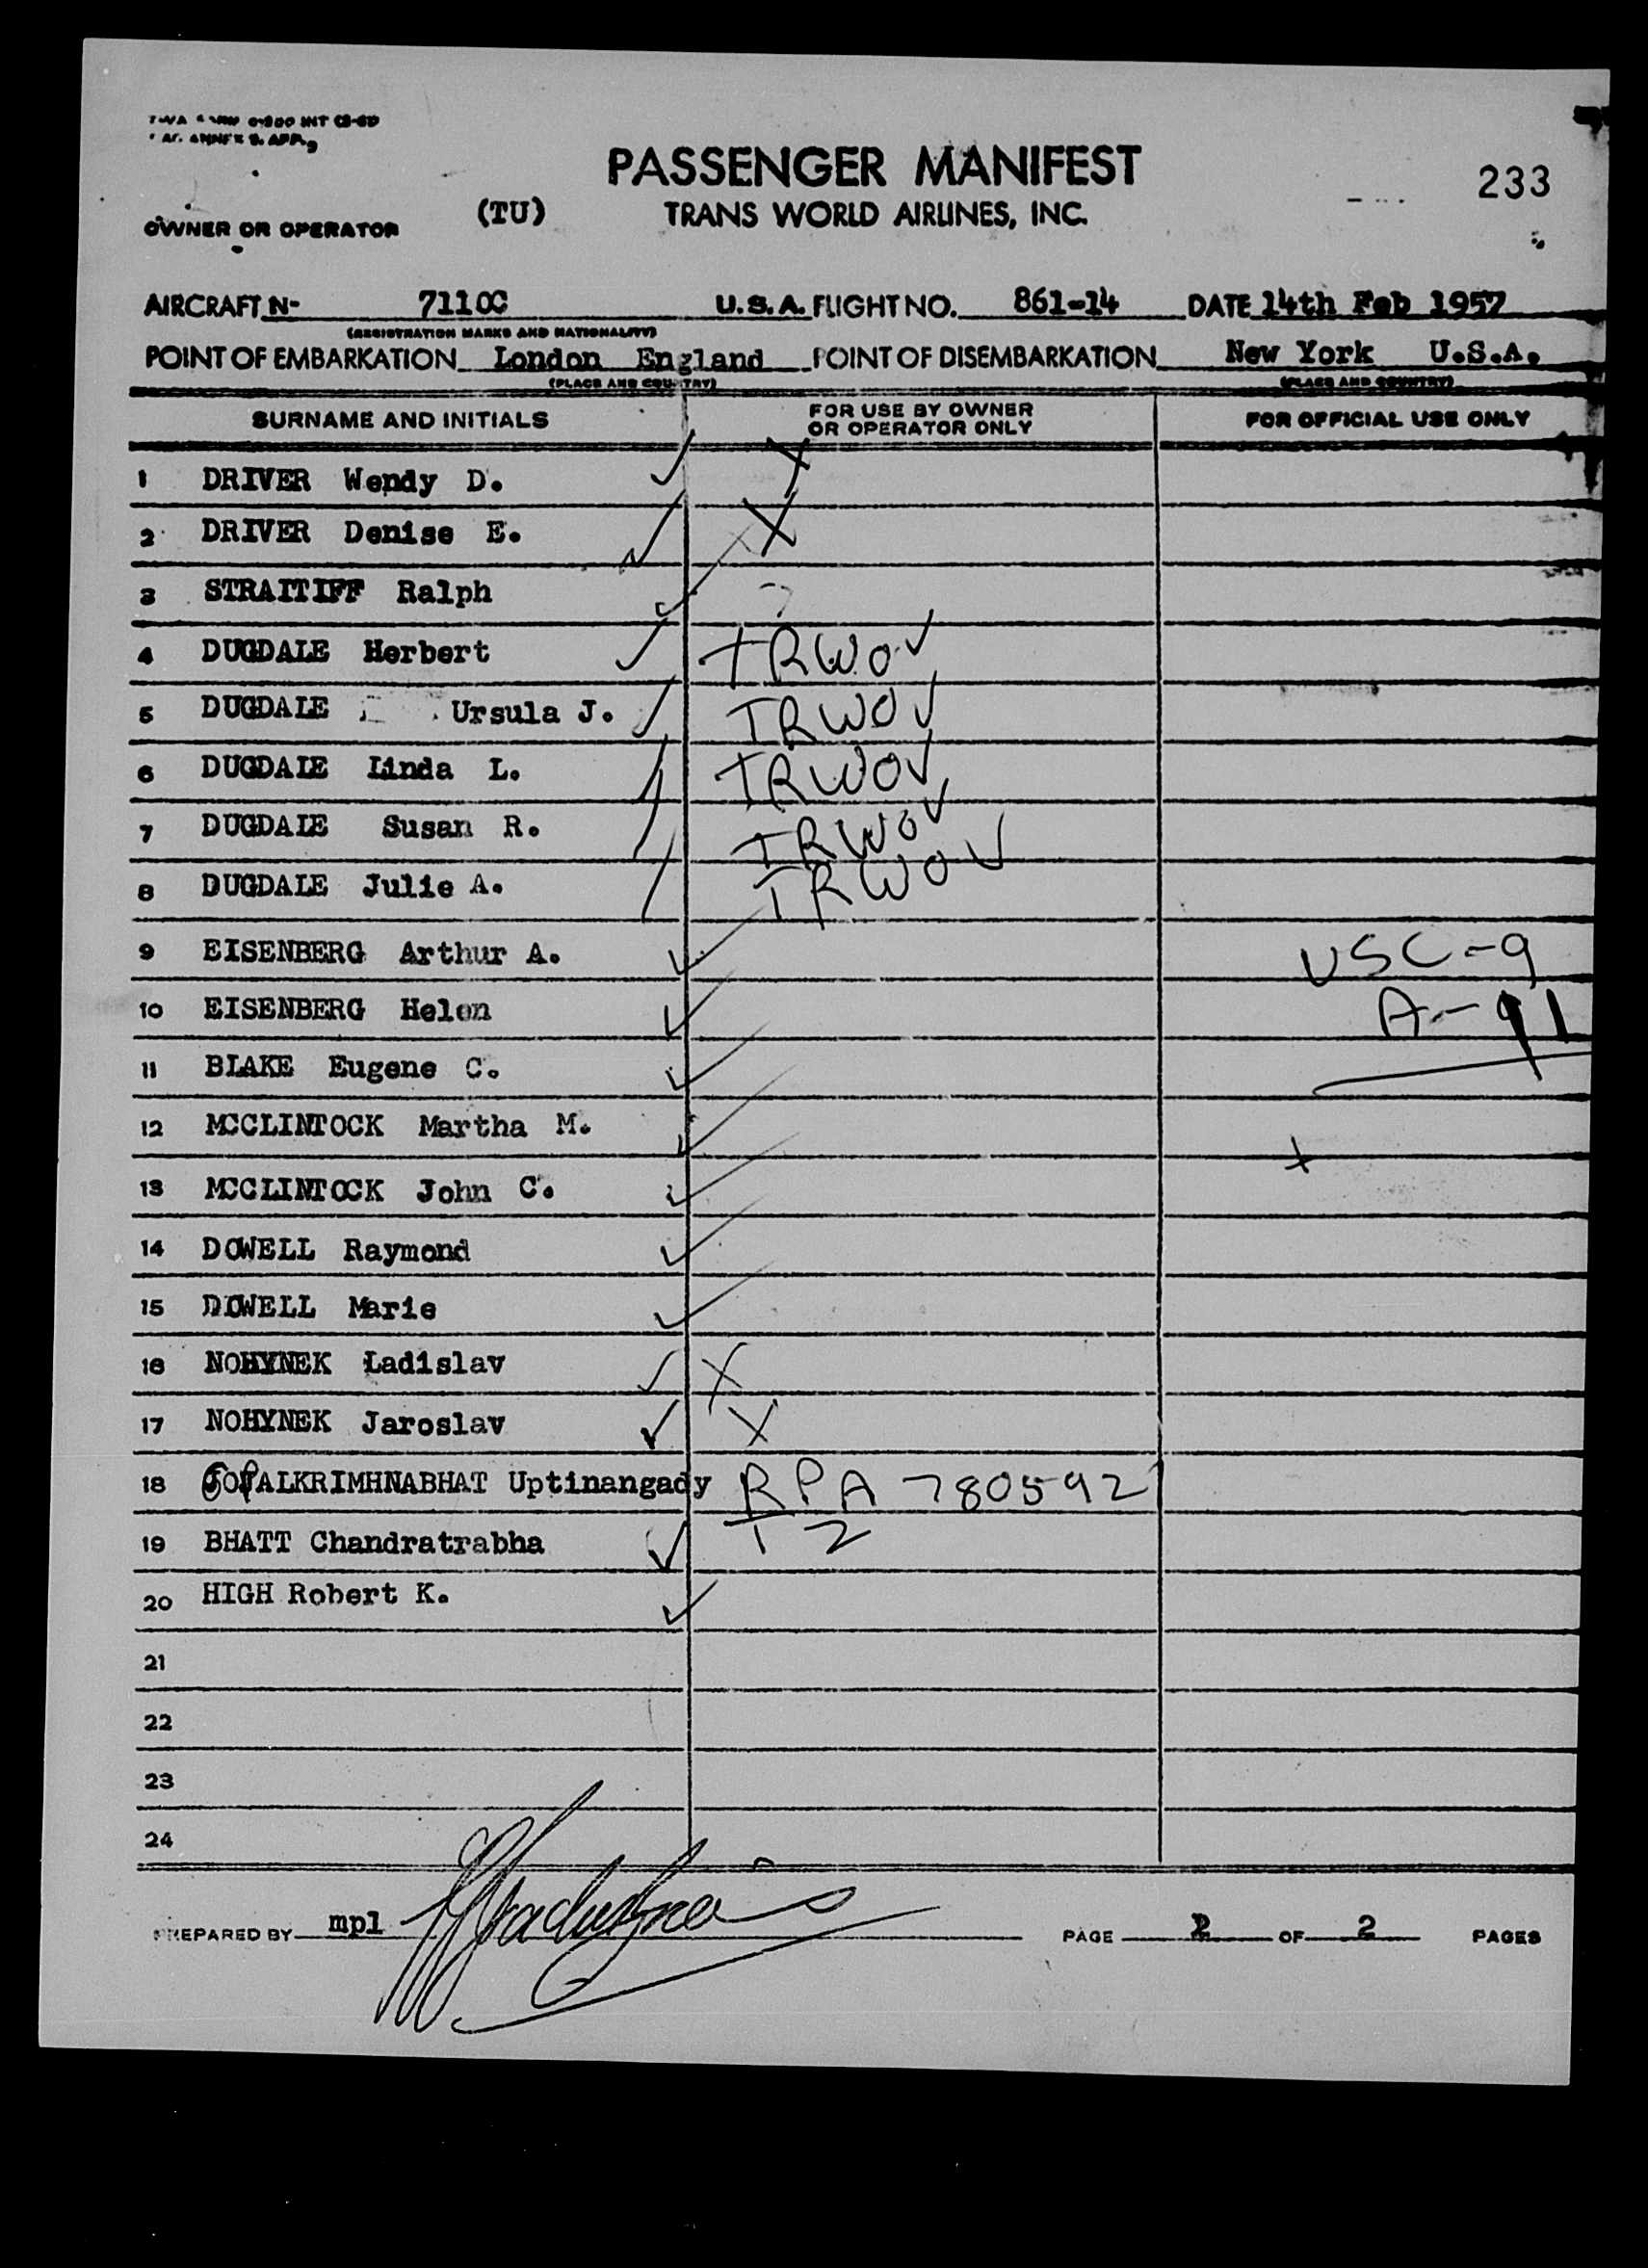 PASSENGER MANIFEST
233
(TU) TRANS WORLD AIRLINES, INC.
OWNER OR OPERATOR
AIRCRAFT N- 7110C U.S.A. FLIGHT NO. 861-14 DATE 14th Feb 1957
(REGISTRATION MARKS AND NATIONALITY)
POINT OF EMBARKATION London England POINT OF DISEMBARKATION New York U.S.A.
(PLACE AND COUNTRY) (PLACE AND COUNTRY)
SURNAME AND INITIALS FOR USE BY OWNER OR OPERATOR ONLY FOR OFFICIAL USE ONLY
1 DRIVER Wendy D. ✓ X
2 DRIVER Denise E. ✓ X
3 STRAITIFF Ralph ✓
4 DUGDALE Herbert ✓ TRWO ✓
5 DUGDALE Ursula J. ✓ TRWO ✓
6 DUGDALE Linda L. TRWO ✓
7 DUGDALE Susan R. TRWO ✓
8 DUGDALE Julie A. TRWO ✓
9 EISENBERG Arthur A. ✓ USC-9
10 EISENBERG Helen ✓ A-91
11 BLAKE Eugene C. ✓
12 MCCLINTOCK Martha M. ✓
13 MCCLINTOCK John C. ✓
14 DOWELL Raymond ✓
15 DOWELL Marie ✓
16 NOHYNEK Ladislav ✓ X
17 NOHYNEK Jaroslav ✓ X
18 GOPALKRIMHNABHAT Uptinangady RPA 780592
19 BHATT Chandratrabha ✓ T 2
20 HIGH Robert K. ✓
21
22
23
24
PREPARED BY mpl PAGE 2 OF 2 PAGES